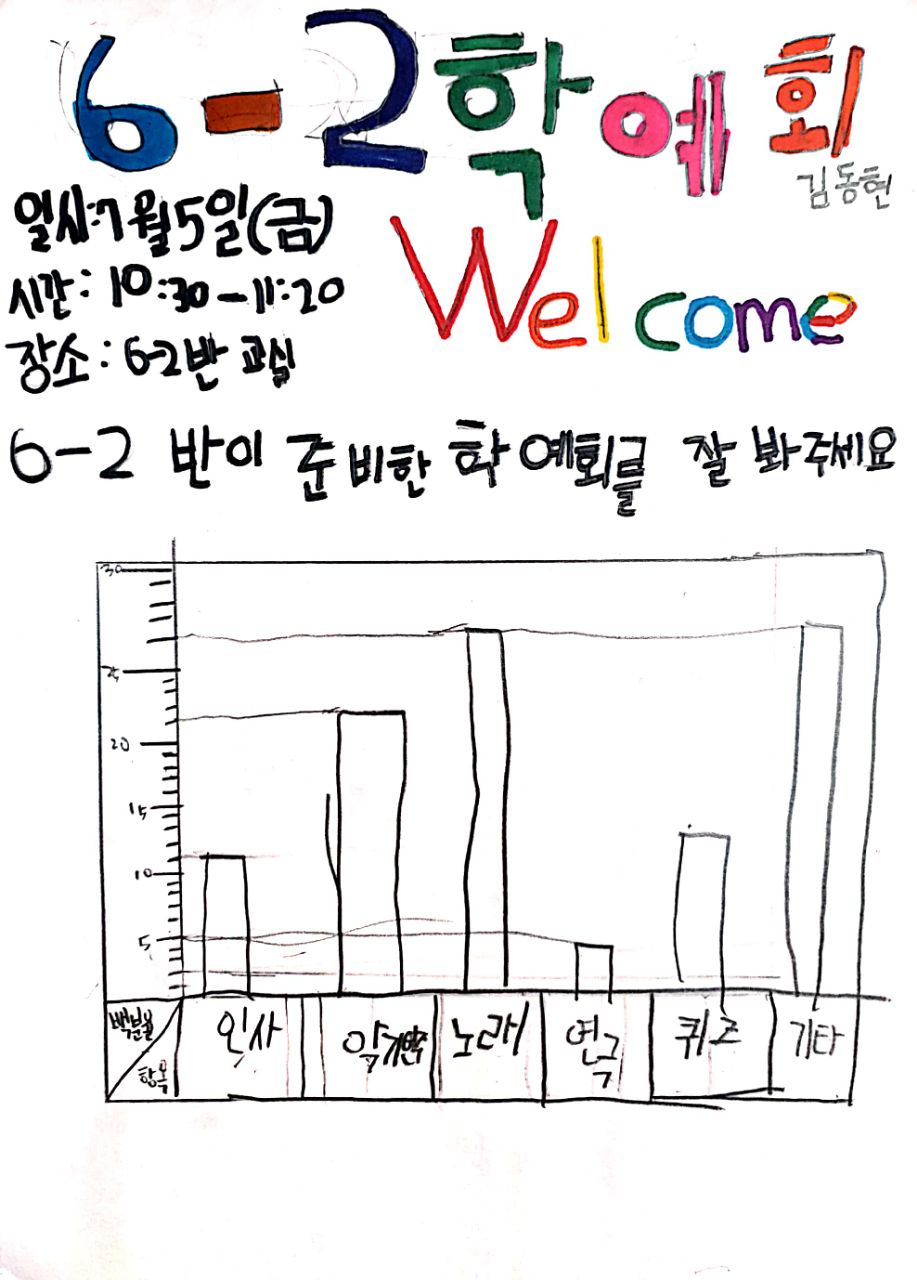 6-2학예회
김동현
일시:7월5일(금)
시간: 10:30-11:20
장소: 6-2반 교실
Welcome
6-2 반이 준비한 학예회를 잘 봐주세요
30
25
20
15
10
5
백분율
항목
인사 악기연주 노래 연극 퀴즈 기타